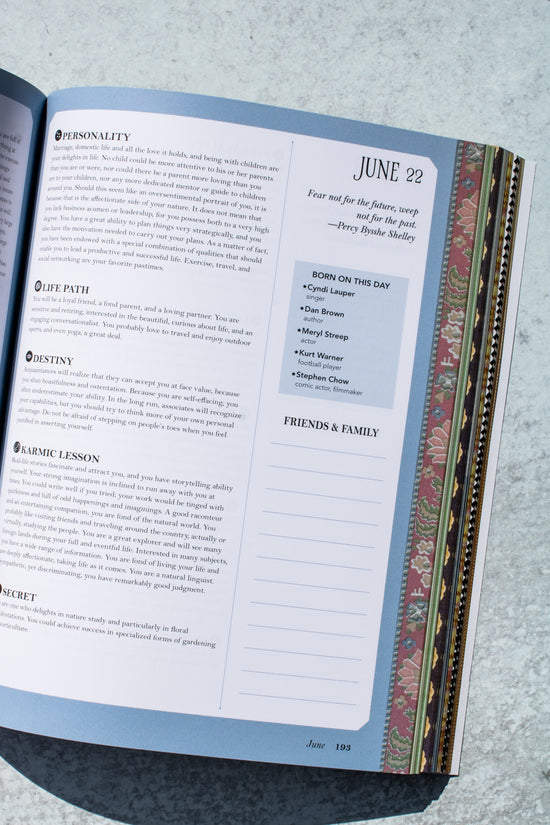 PERSONALITY
Marriage, domestic life and all the love it holds, and being with children are
your delights in life. No child could be more attentive to his or her parents
than you are or were, nor could there be a parent more loving than you
are to your children, nor any more dedicated mentor or guide to children
around you. Should this seem like an oversentimental portrait of you, it is
because that is the affectionate side of your nature. It does not mean that
you lack business acumen or leadership, for you possess both to a very high
degree. You have a great ability to plan things very strategically, and you
also have the motivation needed to carry out your plans. As a matter of fact,
you have been endowed with a special combination of qualities that should
enable you to lead a productive and successful life. Exercise, travel, and
social networking are your favorite pastimes.
LIFE PATH
You will be a loyal friend, a fond parent, and a loving partner. You are
sensitive and retiring, interested in the beautiful, curious about life, and an
engaging conversationalist. You probably love to travel and enjoy outdoor
sports, and even yoga, a great deal.
DESTINY
Acquaintances will realize that they can accept you at face value, because
you shun boastfulness and ostentation. Because you are self-effacing, you
often underestimate your ability. In the long run, associates will recognize
your capabilities, but you should try to think more of your own personal
advantage. Do not be afraid of stepping on people's toes when you feel
justified in asserting yourself.
KARMIC LESSON
Real-life stories fascinate and attract you, and you have storytelling ability
yourself. Your strong imagination is inclined to run away with you at
times. You could write well if you tried; your work would be tinged with
quirkiness and full of odd happenings and imaginings. A good raconteur
and an entertaining companion, you are fond of the natural world. You
probably like visiting friends and traveling around the country, actually or
virtually, studying the people. You are a great explorer and will see many
foreign lands during your full and eventful life. Interested in many subjects,
you have a wide range of information. You are fond of living your life and
are deeply affectionate, taking life as it comes. You are a natural linguist.
Sympathetic, yet discriminating, you have remarkably good judgment.
SECRET
are one who delights in nature study and particularly in floral
festations. You could achieve success in specialized forms of gardening
orticulture.
JUNE 22
Fear not for the future, weep
not for the past.
—Percy Bysshe Shelley
BORN ON THIS DAY
★Cyndi Lauper
singer
★Dan Brown
author
★Meryl Streep
actor
★Kurt Warner
football player
★Stephen Chow
comic actor, filmmaker
FRIENDS & FAMILY
June 193